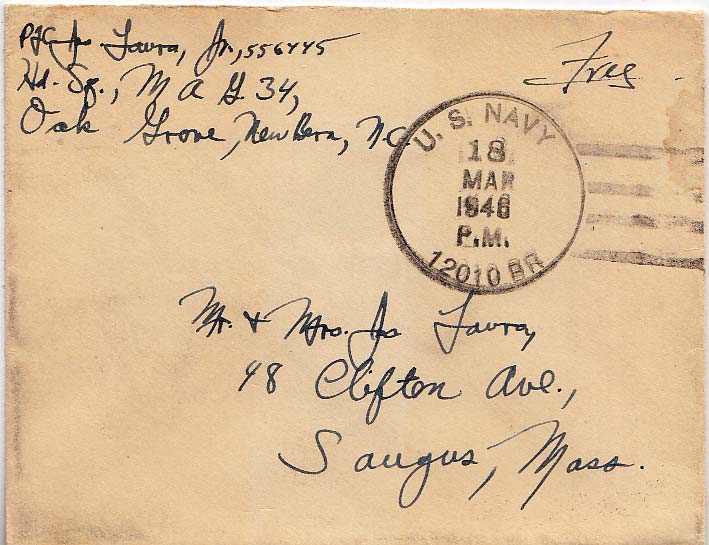 Pfc Jos. Laura, Jr., 556445
Hd. Sq., M A G 34,
Oak Grove, New Bern, N.C.
Free
U. S. NAVY
18
MAR
1946
P.M.
12010 BR
Mr. & Mrs. Jos Laura,
48 Clifton Ave.,
Saugus, Mass.